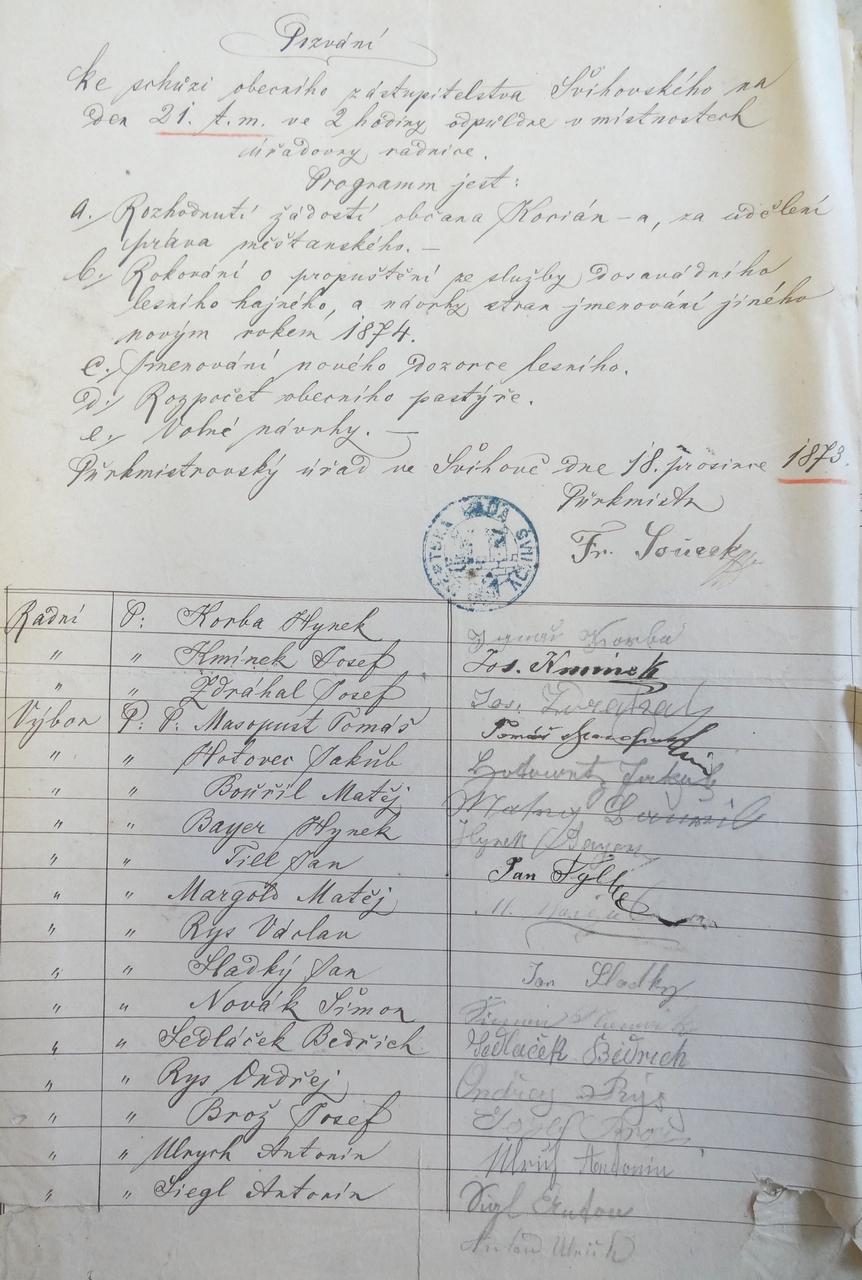 Pozvání
ke schůzi obecního zástupitelstva Švihovského na
den 21. t.m. ve 2 hodiny odpůldne v místnostech
úřadovny radnice.
Programm jest:
a./ Rozhodnutí žádostí občana Kocián-a, za udělení
práva měšťanského. —
b./ Rokování o propuštění ze služby dosavádního
lesního hajného, a návrhy stran jmenování jiného
novým rokem 1874.
c./ Jmenování nového dozorce lesního.
d./ Rozpočet obecního pastýře.
e./ Volné návrhy. —
Pürkmistrovský úřad ve Švihově dne 18. prosince 1873.
Pürkmistr
Fr. Souček
RADA
Radní P: Korba Hynek Korba
" " Kmínek Josef Jos. Kminek
" " Zdráhal Josef Jos. Zdrahal
Výbor P: P: Masopust Tomáš Tomáš
" " Hotovec Jakub Jakub
" " Bouřil Matěj
" " Bayer Hynek Hynek Bayer
" " Till Jan Jan Tyll
" " Margold Matěj M.
" " Rys Václav
" " Sladký Jan Jan Sladky
" " Novák Šimon
" " Sedláček Bedřich Sedlaček Bedřich
" " Rys Ondřej Ondřey Rys
" " Brož Josef Josef Brož
" " Ulrych Antonín Ulrich Antonin
" " Siegl Antonín Sigl Anton
Anton Ulrich